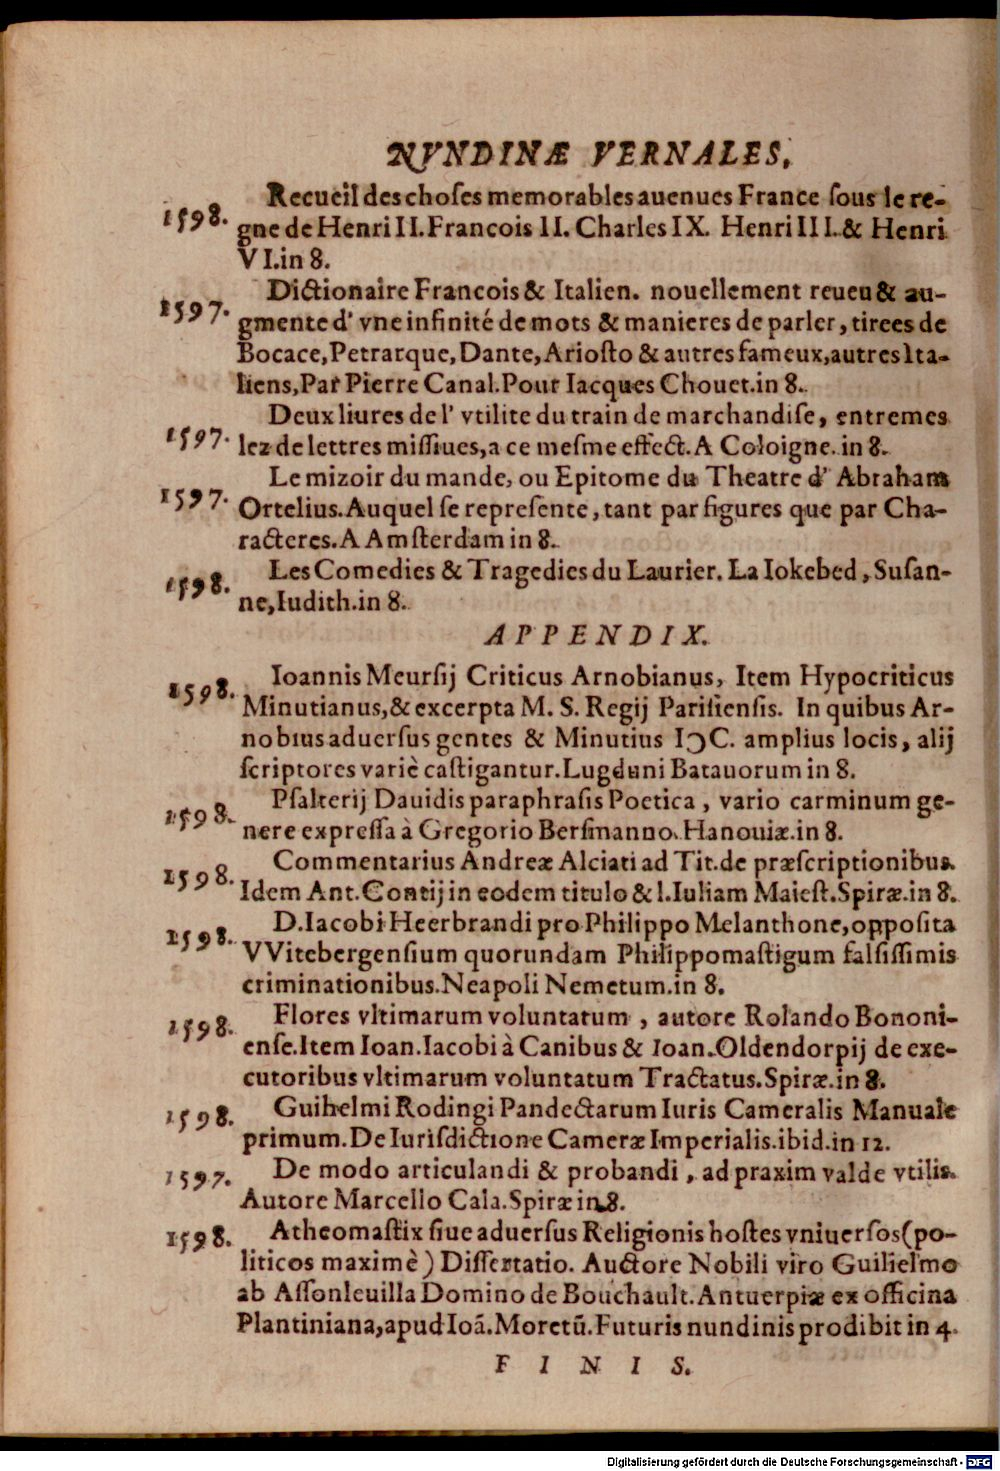 NVNDINÆ VERNALES,
Recueil des choses memorables auenues France sous le re-
1598. gne de Henri II. Francois II. Charles IX. Henri III. & Henri
VI. in 8.
Dictionaire Francois & Italien. nouellement reueu & au-
1597. gmente d' vne infinité de mots & manieres de parler, tirees de
Bocace, Petrarque, Dante, Ariosto & autres fameux, autres Ita-
liens, Par Pierre Canal. Pour Iacques Chouet. in 8.
Deux liures de l' vtilite du train de marchandise, entremes
1597. lez de lettres missiues, a ce mesme effect. A Coloigne. in 8.
Le mizoir du mande, ou Epitome du Theatre d' Abraham
1597. Ortelius. Auquel se represente, tant par figures que par Cha-
racteres. A Amsterdam in 8.
Les Comedies & Tragedies du Laurier. La Iokebed, Susan-
1598. ne, Iudith. in 8.
APPENDIX.
Ioannis Meursij Criticus Arnobianus, Item Hypocriticus
1598. Minutianus, & excerpta M. S. Regij Parisiensis. In quibus Ar-
nobius aduersus gentes & Minutius IↃC. amplius locis, alij
scriptores variè castigantur. Lugduni Batauorum in 8.
Psalterij Dauidis paraphrasis Poetica, vario carminum ge-
1598. nere expressa à Gregorio Bersmanno. Hanouiæ. in 8.
Commentarius Andreæ Alciati ad Tit. de præscriptionibus.
1598. Idem Ant. Contij in eodem titulo & l. Iuliam Maiest. Spiræ. in 8.
D. Iacobi Heerbrandi pro Philippo Melanthone, opposita
1598. VVitebergensium quorundam Philippomastigum falsissimis
criminationibus. Neapoli Nemetum. in 8.
Flores vltimarum voluntatum, autore Rolando Bononi-
1598. ense. Item Ioan. Iacobi à Canibus & Ioan. Oldendorpij de exe-
cutoribus vltimarum voluntatum Tractatus. Spiræ. in 8.
Guihelmi Rodingi Pandectarum Iuris Cameralis Manuale
1598. primum. De Iurisdictione Cameræ Imperialis. ibid. in 12.
1597. De modo articulandi & probandi, ad praxim valde vtilis.
Autore Marcello Cala. Spiræ in 8.
1598. Atheomastix siue aduersus Religionis hostes vniuersos (po-
liticos maximè) Dissertatio. Auctore Nobili viro Guilielmo
ab Assonleuilla Domino de Bouchault. Antuerpiæ ex officina
Plantiniana, apud Ioã. Moretũ. Futuris nundinis prodibit in 4.
FINIS.
Digitalisierung gefördert durch die Deutsche Forschungsgemeinschaft - DFG